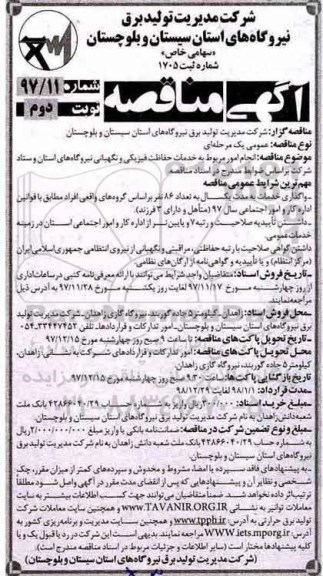 شرکت مدیریت تولید برق
نیروگاه‌های استان سیستان و بلوچستان
«سهامی خاص»
شماره ثبت ۱۷۰۵
آگهی مناقصه
شماره ۹۷/۱۱
نوبت دوم
مناقصه گزار: شرکت مدیریت تولید برق نیروگاه‌های استان سیستان و بلوچستان
نوع مناقصه: عمومی یک مرحله‌ای
موضوع مناقصه: انجام امور مربوط به خدمات حفاظت فیزیکی و نگهبانی نیروگاه‌های استان و ستاد
شرکت براساس ضوابط مندرج در اسناد مناقصه
مهم‌ترین شرایط عمومی مناقصه
ـ واگذاری خدمات به مدت یکسال به تعداد ۸۶ نفر براساس گروه‌های واقعی افراد مطابق با قوانین
اداره کار و امور اجتماعی سال ۹۷ (متأهل و دارای ۳ فرزند).
ـ داشتن تأییدیه صلاحیت و رتبه ۷ و پایین‌تر از اداره کار و امور اجتماعی استان در زمینه
خدمات عمومی.
داشتن گواهی صلاحیت با رتبه حفاظتی، مراقبتی و نگهبانی از نیروی انتظامی جمهوری اسلامی ایران
(مرکز انتظام) و یا تأییدیه و گواهی‌نامه از ارگان‌های نظامی
ـ تاریخ فروش اسناد: متقاضیان واجد شرایط می‌توانند با ارائه معرفی‌نامه کتبی در ساعات اداری
از روز چهارشنبه مورخ ۹۷/۱۱/۱۷ لغایت روز یکشنبه مورخ ۹۷/۱۱/۲۸ به آدرس ذیل
مراجعه نمایند.
ـ محل فروش اسناد: زاهدان ـ کیلومتر ۵ جاده گوربند، نیروگاه گازی زاهدان ـ شرکت مدیریت تولید
برق نیروگاه‌های استان سیستان و بلوچستان ـ امور تدارکات و قراردادها ـ تلفن ۰۵۴ـ۳۳۴۴۷۴۵۲
ـ تاریخ تحویل پاکت‌های مناقصه: تا ساعت ۹ صبح روز چهارشنبه مورخ ۹۷/۱۲/۱۵
محل تحویل پاکت‌های مناقصه: امور تدارکات و قراردادهای شرکت به نشانی زاهدان،
کیلومتر ۵ جاده گوربند، نیروگاه گازی زاهدان.
تاریخ بازگشایی پاکت‌ها: ساعت ۹:۳۰ صبح روز چهارشنبه مورخ ۹۷/۱۲/۱۵
مدت قرارداد: ۹۸/۱/۱ لغایت ۹۸/۱۲/۲۹
ـ مبلغ خرید اسناد: ۳۰۰/۰۰۰ ریال واریز به شماره حساب ۴۲۸۶۶۰۴۰/۲۹ بانک ملت
شعبه دانش زاهدان به نام شرکت مدیریت تولید برق نیروگاه‌های استان سیستان و بلوچستان.
مبلغ و نوع تضمین شرکت در مناقصه: ضمانت‌نامه بانکی یا واریز مبلغ ۲/۰۰۰/۰۰۰/۰۰۰ ریال
به شماره حساب ۴۲۸۶۶۰۴۰/۲۹ بانک ملت شعبه دانش زاهدان به نام شرکت مدیریت تولید برق
نیروگاه‌های استان سیستان و بلوچستان.
ـ به پیشنهادهای فاقد سپرده یا امضا، مشروط و مخدوش و سپرده‌های کمتر از میزان مقرر، چک
شخصی و نظایر آن و پیشنهادهایی که پس از انقضای مدت مقرر در آگهی واصل شود مطلقاً
ترتیب اثر داده نخواهد شد. ضمناً متقاضیان می‌توانند جهت کسب اطلاعات بیشتر به سایت
معاملات توانیر به نشانی WWW.TAVANIR.ORG.IR و همچنین سایت معاملات شرکت
تولید برق حرارتی به آدرس www.tpph.ir و همچنین سایت مدیریت و برنامه‌ریزی کشور به
آدرس WWW.iets.mporg.ir مراجعه نمایند. بدیهی است این شرکت در رد یا قبول یک و یا
کلیه پیشنهادها مختار است (سایر اطلاعات و جزئیات مربوط در اسناد مناقصه مندرج است).
(شرکت مدیریت تولید برق نیروگاه‌های استان سیستان و بلوچستان)